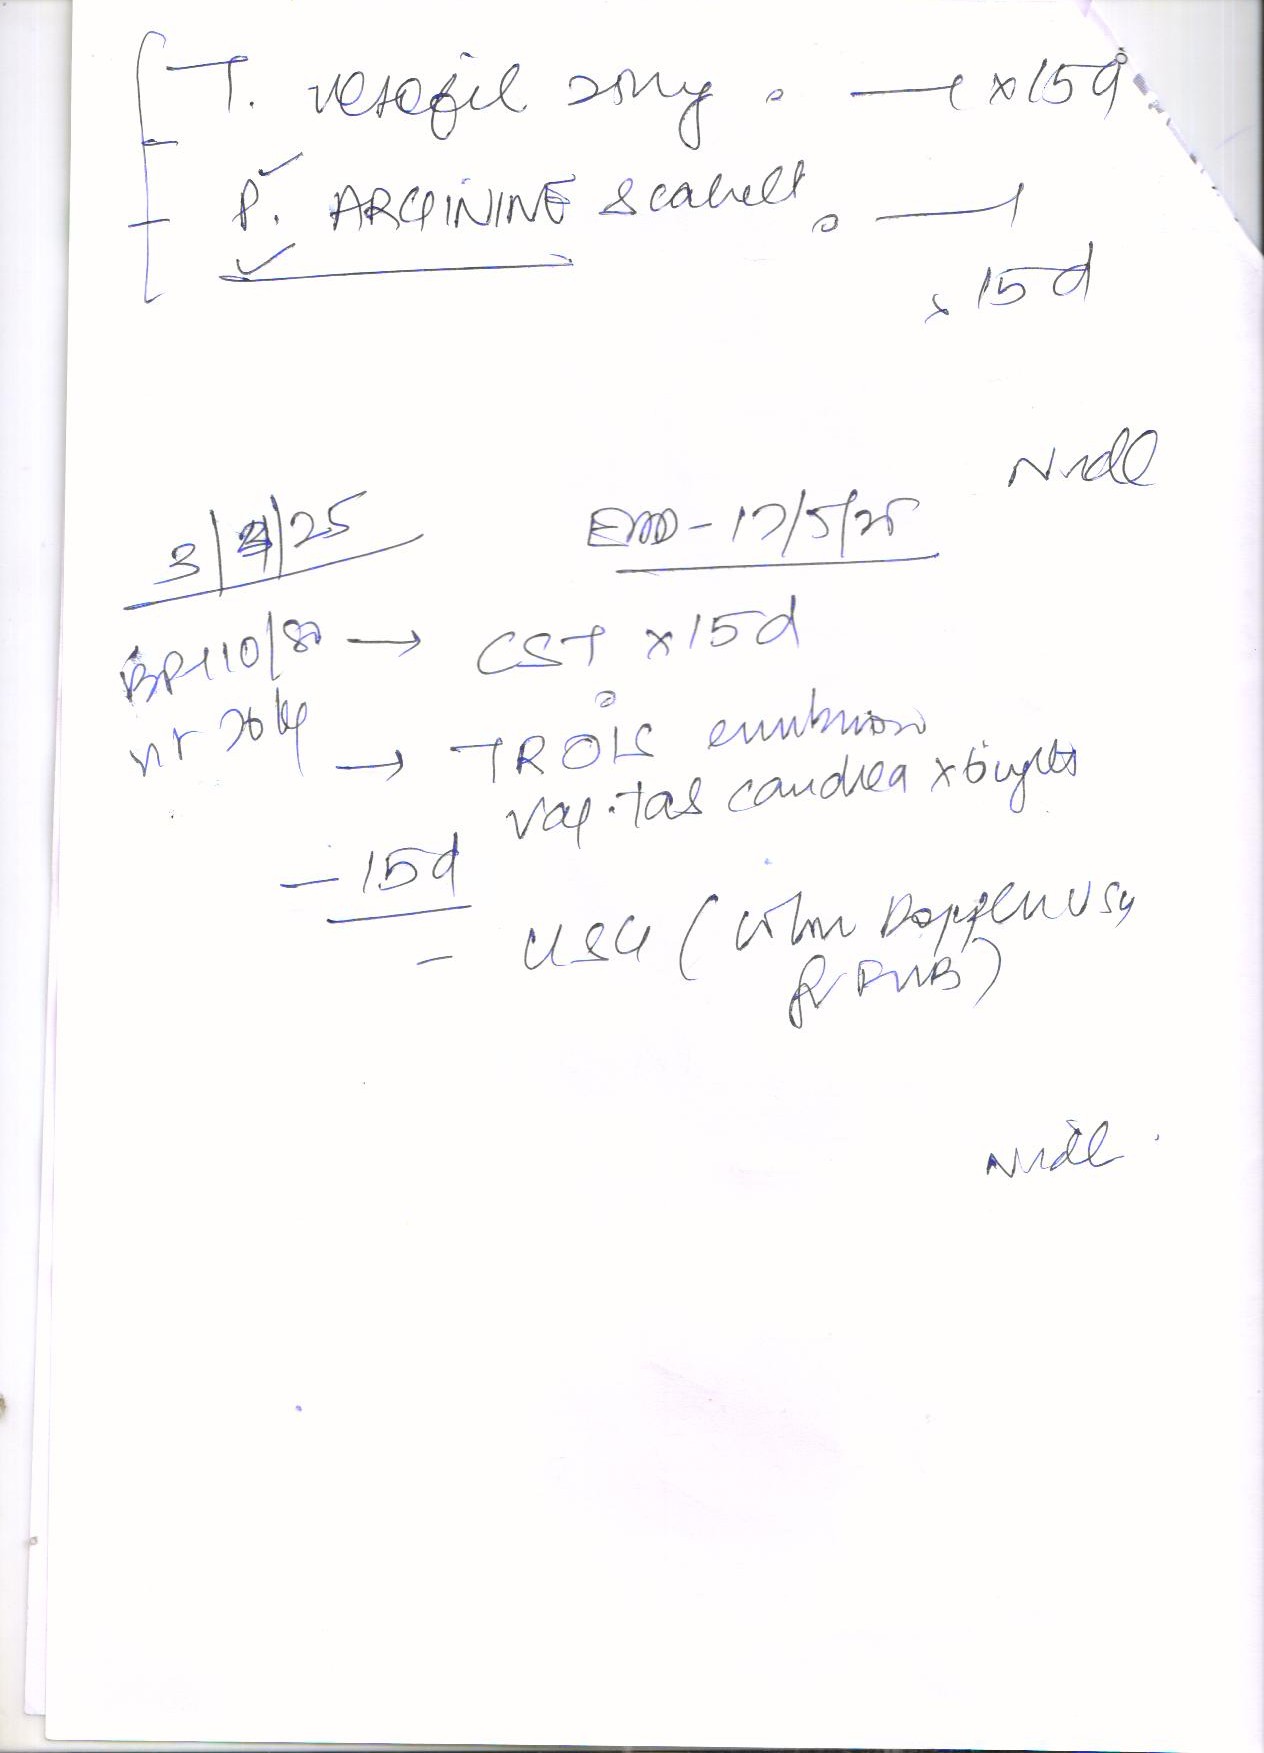 T. vesofil 20mg . — x 15d
P. ARGININE Sachet . —
x 15d
3/4/25 EDD - 17/5/25
BP 110/80 → CST x 15d
wt 70 kg
→ TROIS emulsion
Vag. tab candrea x 6 nights
— 15d
- USG (Colour Doppler USG
for FWB)